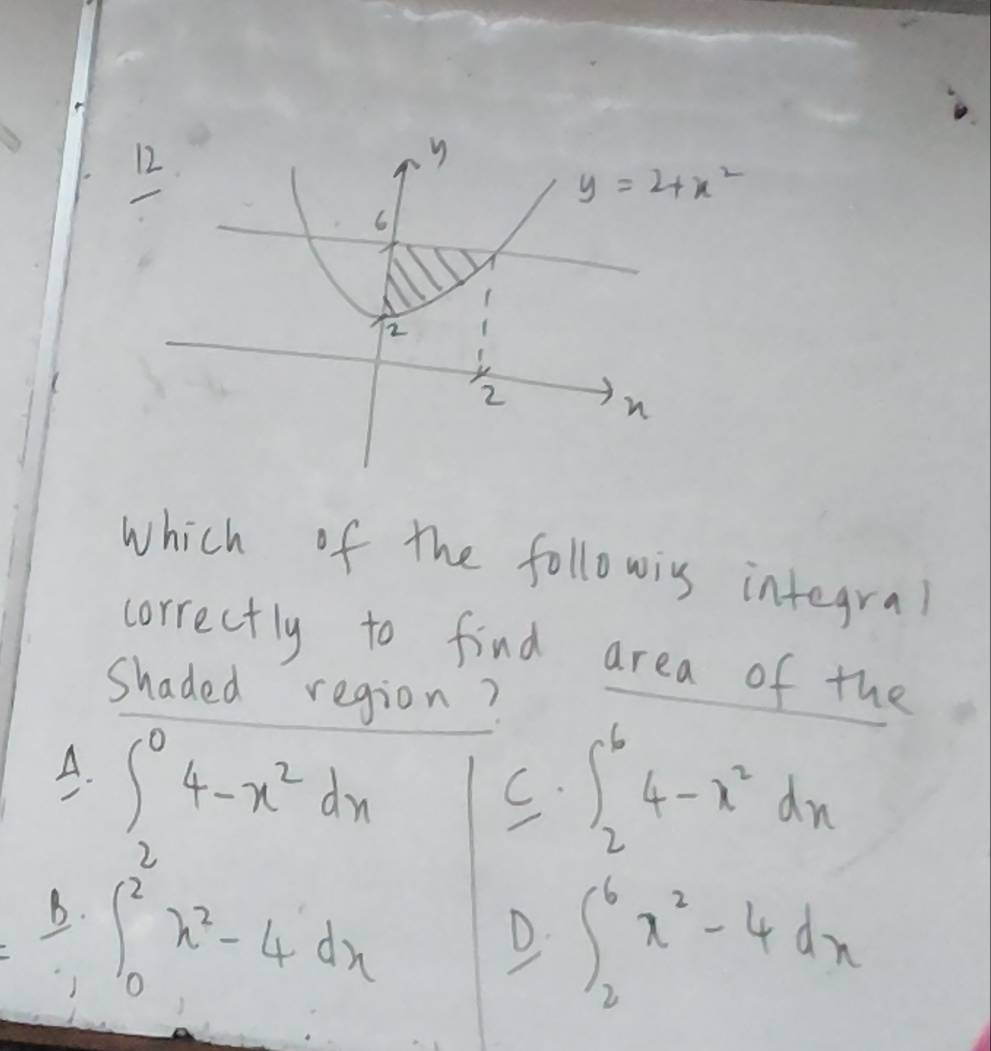 12
y
y = 2+x²
6
2
2
x
which of the followig integral
correctly to find area of the
shaded region?
A. ∫₂⁰ 4-x² dx
B. ∫₀² x²-4 dx
C. ∫₂⁶ 4-x² dx
D. ∫₂⁶ x²-4 dx